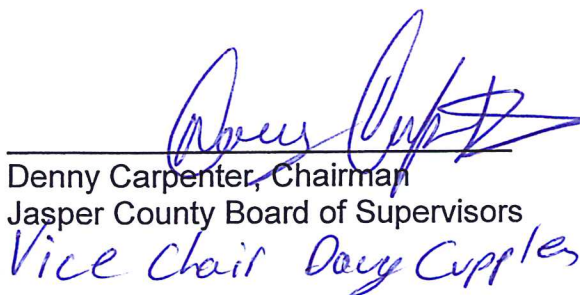 Doug Cupples
Denny Carpenter, Chairman
Jasper County Board of Supervisors
Vice Chair Doug Cupples